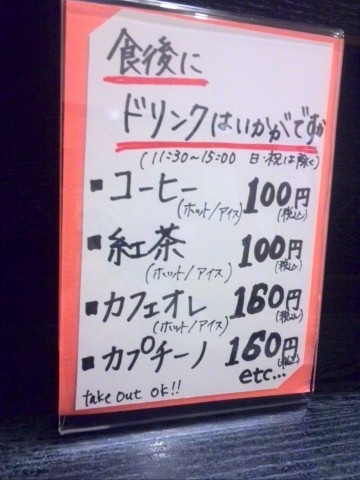 食後に
ドリンクはいかがですか
(11:30～15:00 日・祝は除く)
■コーヒー 100円
(ホット/アイス) (税込)
■紅茶 100円
(ホット/アイス) (税込)
■カフェオレ 160円
(ホット/アイス) (税込)
■カプチーノ 160円
(税込)
etc...
take out ok!!